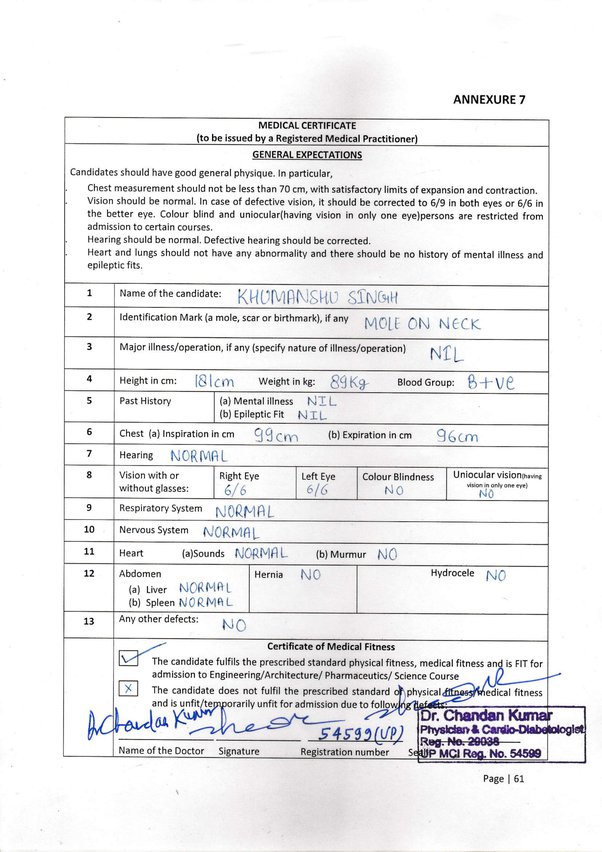 ANNEXURE 7
MEDICAL CERTIFICATE
(to be issued by a Registered Medical Practitioner)
GENERAL EXPECTATIONS
Candidates should have good general physique. In particular,
Chest measurement should not be less than 70 cm, with satisfactory limits of expansion and contraction.
Vision should be normal. In case of defective vision, it should be corrected to 6/9 in both eyes or 6/6 in
the better eye. Colour blind and uniocular(having vision in only one eye)persons are restricted from
admission to certain courses.
Hearing should be normal. Defective hearing should be corrected.
Heart and lungs should not have any abnormality and there should be no history of mental illness and
epileptic fits.
1 Name of the candidate: KHUMANSHU SINGH
2 Identification Mark (a mole, scar or birthmark), if any MOLE ON NECK
3 Major illness/operation, if any (specify nature of illness/operation) NIL
4 Height in cm: 181cm Weight in kg: 89Kg Blood Group: B+ve
5 Past History (a) Mental illness NIL
(b) Epileptic Fit NIL
6 Chest (a) Inspiration in cm 99cm (b) Expiration in cm 96cm
7 Hearing NORMAL
8 Vision with or without glasses: Right Eye 6/6 Left Eye 6/6 Colour Blindness NO Uniocular vision(having vision in only one eye) NO
9 Respiratory System NORMAL
10 Nervous System NORMAL
11 Heart (a)Sounds NORMAL (b) Murmur NO
12 Abdomen Hernia NO Hydrocele NO
(a) Liver NORMAL
(b) Spleen NORMAL
13 Any other defects: NO
Certificate of Medical Fitness
The candidate fulfils the prescribed standard physical fitness, medical fitness and is FIT for
admission to Engineering/Architecture/ Pharmaceutics/ Science Course
X The candidate does not fulfil the prescribed standard of physical fitness/medical fitness
and is unfit/temporarily unfit for admission due to following defects:
Dr Chandan Kumar 54599(UP)
Dr. Chandan Kumar
Physician & Cardio-Diabetologist
Reg. No. 29038
UP MCI Reg. No. 54599
Name of the Doctor Signature Registration number Seal
Page | 61